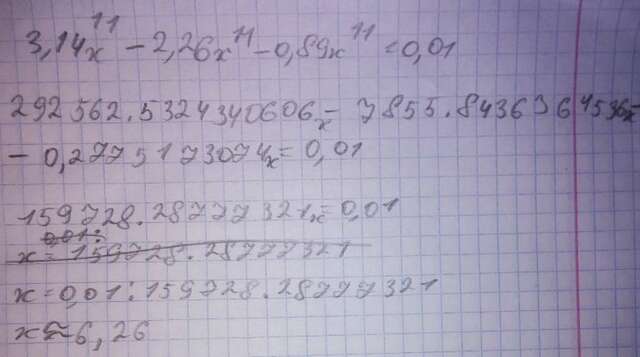 3,14x¹¹ - 2,26x¹¹ - 0,89x¹¹ = 0,01
292562.5324340606x - 7855.8436364536x
- 0,2775173074x = 0,01
159728.28777321x = 0,01
0,01:
x = 159728.28777321
x = 0,01 : 159728.28777321
x ≈ 6,26